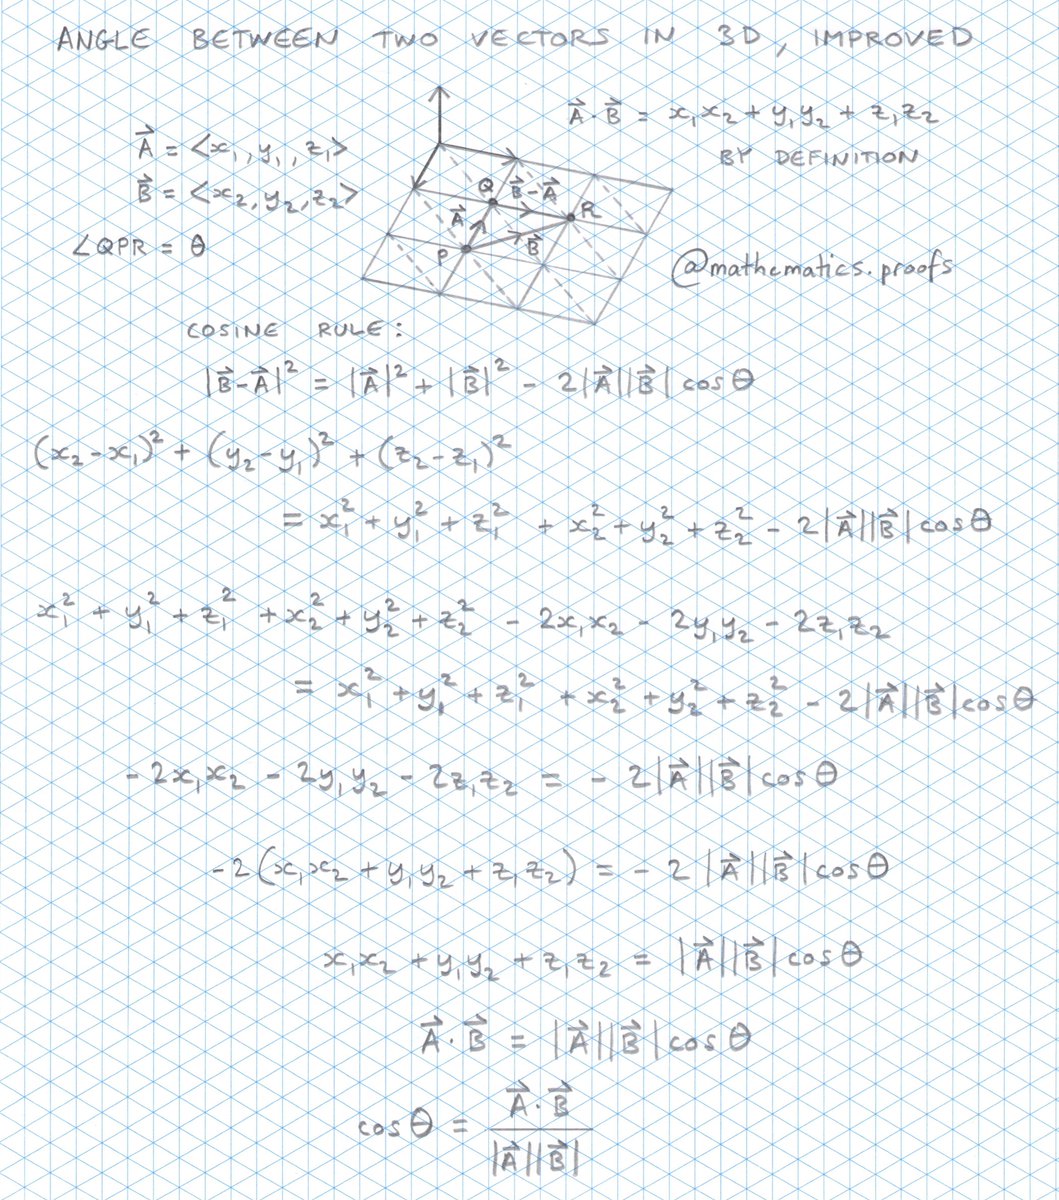 ANGLE BETWEEN TWO VECTORS IN 3D, IMPROVED
A⃗ = <x₁, y₁, z₁>
B⃗ = <x₂, y₂, z₂>
∠QPR = θ
Q B⃗-A⃗ R
A⃗
P B⃗
A⃗·B⃗ = x₁x₂ + y₁y₂ + z₁z₂
BY DEFINITION
@mathematics.proofs
COSINE RULE:
|B⃗-A⃗|² = |A⃗|² + |B⃗|² - 2|A⃗||B⃗| cosθ
(x₂-x₁)² + (y₂-y₁)² + (z₂-z₁)²
= x₁² + y₁² + z₁² + x₂² + y₂² + z₂² - 2|A⃗||B⃗|cosθ
x₁² + y₁² + z₁² + x₂² + y₂² + z₂² - 2x₁x₂ - 2y₁y₂ - 2z₁z₂
= x₁² + y₁² + z₁² + x₂² + y₂² + z₂² - 2|A⃗||B⃗|cosθ
-2x₁x₂ - 2y₁y₂ - 2z₁z₂ = -2|A⃗||B⃗|cosθ
-2(x₁x₂ + y₁y₂ + z₁z₂) = -2|A⃗||B⃗|cosθ
x₁x₂ + y₁y₂ + z₁z₂ = |A⃗||B⃗|cosθ
A⃗·B⃗ = |A⃗||B⃗|cosθ
cosθ = A⃗·B⃗ / |A⃗||B⃗|